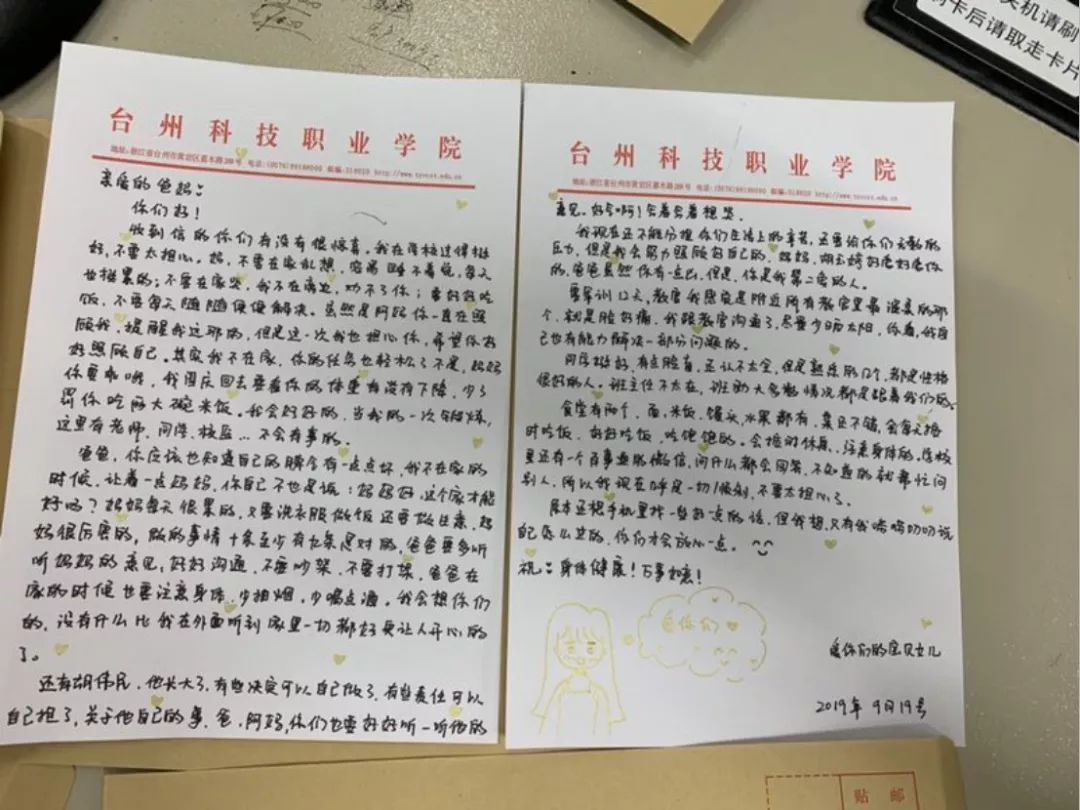 关机请刷
刷卡后请取走卡片
台州科技职业学院
地址:浙江省台州市黄岩区嘉木路288号 电话:(0576)89188000 邮编:318020 http://www.tzvcst.edu.cn
亲爱的爸妈:
你们好!
收到信的你们有没有很惊喜,我在学校过得挺
好,不要太担心。妈,不要在家乱想,容易睡不着觉,每天
也挺累的;不要在家哭,我不在旁边,劝不了你;要好好吃
饭,不要每天随随便便解决。虽然是阿妈你一直在照
顾我,提醒我这那的,但是这一次我也担心你,希望你好
好照顾自己。其实我不在家,你的任务也轻松了不是,妈妈
你要乖哦,我国庆回去要看你的体重有没有下降,少了
罚你吃两大碗米饭。我会好好的,当我的一次锻炼,
这里有老师、同学、校医…不会有事的。
爸爸,你应该也知道自己的脾气有一点点坏,我不在家的
时候,让着一点妈妈,你自己不也是说:妈妈好,这个家才能
好吗?妈妈每天很累的,又要洗衣服做饭还要做生意,妈
妈很厉害的,做的事情十条至少有九条是对的,爸爸要多听
听妈妈的意见,好好沟通,不要吵架,不要打架,爸爸在
家的时候也要注意身体,少抽烟,少喝点酒。我会想你们
的,没有什么比我在外面听到家里一切都好更让人开心的
了。
还有胡伟民,他长大了,有些决定可以自己做了,有些责任可以
自己担了,关于他自己的事,爸,阿妈,你们也要好好听一听他的
台州科技职业学院
地址:浙江省台州市黄岩区嘉木路288号 电话:(0576)89188000 邮编:318020 http://www.tzvcst.edu.cn
意见。好令啊!写着写着想哭。
我现在还不能分担你们生活上的辛苦,还要给你们无数的
压力,但是我会努力照顾好自己的,妈妈,胡云婷好爱好爱你
的,爸爸虽然你有一点凶,但是,你是我第二爱的人。
要军训12天,教官我感觉是附近所有教官里最温柔的那
个,就是脸好痛,我跟教官沟通了,尽量少晒太阳,你看,我自
己也有能力解决一部分问题的。
同学挺好,有点脸盲,还认不太全,但是熟悉的几个,都是性格
很好的人。班主任不太在,班助大多数情况都是跟着我们的。
食堂有两个,面,米饭,馒头,水果都有,菜还不错,会每天按
时吃饭,好好吃饭,吃饱饱的。会按时休息,注意身体的。学校
里还有一个百事通的微信,问什么都会回答,不知道的就帮忙问
别人,所以我现在呀是一切顺利,不要太担心了。
原本还想手机里找一些好一点的话,但我想,只有我唠唠叨叨说
自己怎么过的,你们才会放心一点。
祝:身体健康!万事如意!
爱你们
爱你们的宝贝女儿
2019年9月19号
贴 邮